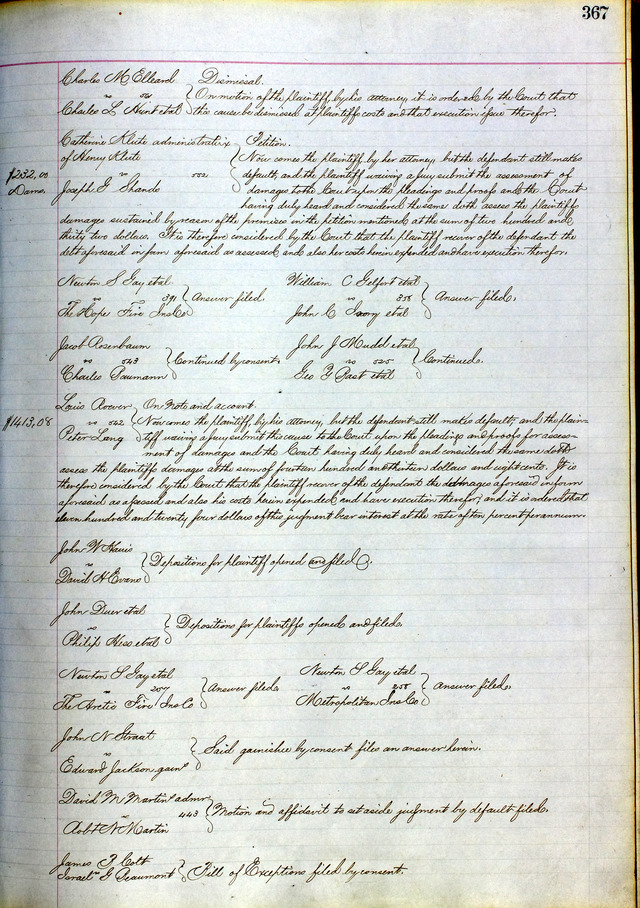 367
Charles M Elleard Dismissal.
vs On motion of the plaintiff by his attorney it is ordered by the Court that
Charles L Hunt etal this cause be dismissed at plaintiffs costs and that execution issue therefor.
Catherine Kleite administratrix Petition.
of Henry Kleite Now comes the plaintiff by her attorney, but the defendant still makes
$232.00 vs 552 default, and the plaintiff waiving a jury submit the assessment of
Dams. Joseph G Shands damages to the Court upon the pleadings and proofs and the Court
having duly heard and considered the same doth assess the plaintiffs
damages sustained by reason of the premises in the petition mentioned at the sum of two hundred and
thirty two dollars. It is therefore considered by the Court that the plaintiff recover of the defendant the
debt aforesaid in form aforesaid as assessed and also her costs herein expended and have execution therefor.
Newton S Gay etal
vs 391 Answer filed.
The Hope Fire Ins Co
William C etal
vs 358 Answer filed.
John C Ivory etal
Jacob Rosenbaum
vs 543 Continued by consent.
Charles Baumann
John J Mudd etal
vs 525 Continued.
Geo Y Bast etal
Louis Roever On Note and account.
$1413,08 vs 542 Now comes the plaintiff, by his attorney, but the defendant still makes default, and the plain-
Peter Lang tiff waiving a jury submit this cause to the Court upon the pleadings and proofs for assess-
ment of damages and the Court having duly heard and considered the same doth
assess the plaintiffs damages at the sum of fourteen hundred and thirteen dollars and eight cents. It is
therefore considered by the Court that the plaintiff recover of the defendant the damages aforesaid in form
aforesaid as assessed and also his costs herein expended and have execution therefor, and it is ordered that
eleven hundred and twenty four dollars of this judgment bear interest at the rate of ten percent per annum.
John W
vs Depositions for plaintiff opened and filed.
David H Evans
John Duer etal
vs Depositions for plaintiffs opened and filed.
Philip Hess etal
Newton S Gay etal
vs 257 Answer filed.
The Arctic Fire Ins Co
Newton S Gay etal
vs 258 Answer filed.
Metropolitan Ins Co
John N Straat
vs Said garnishee by consent files an answer herein.
Edward Jackson garn
David M Martin's admr
vs 443 Motion and affidavit to set aside judgment by default filed.
Robt N Martin
James Colt
Israel G Beaumont Bill of Exceptions filed by consent.